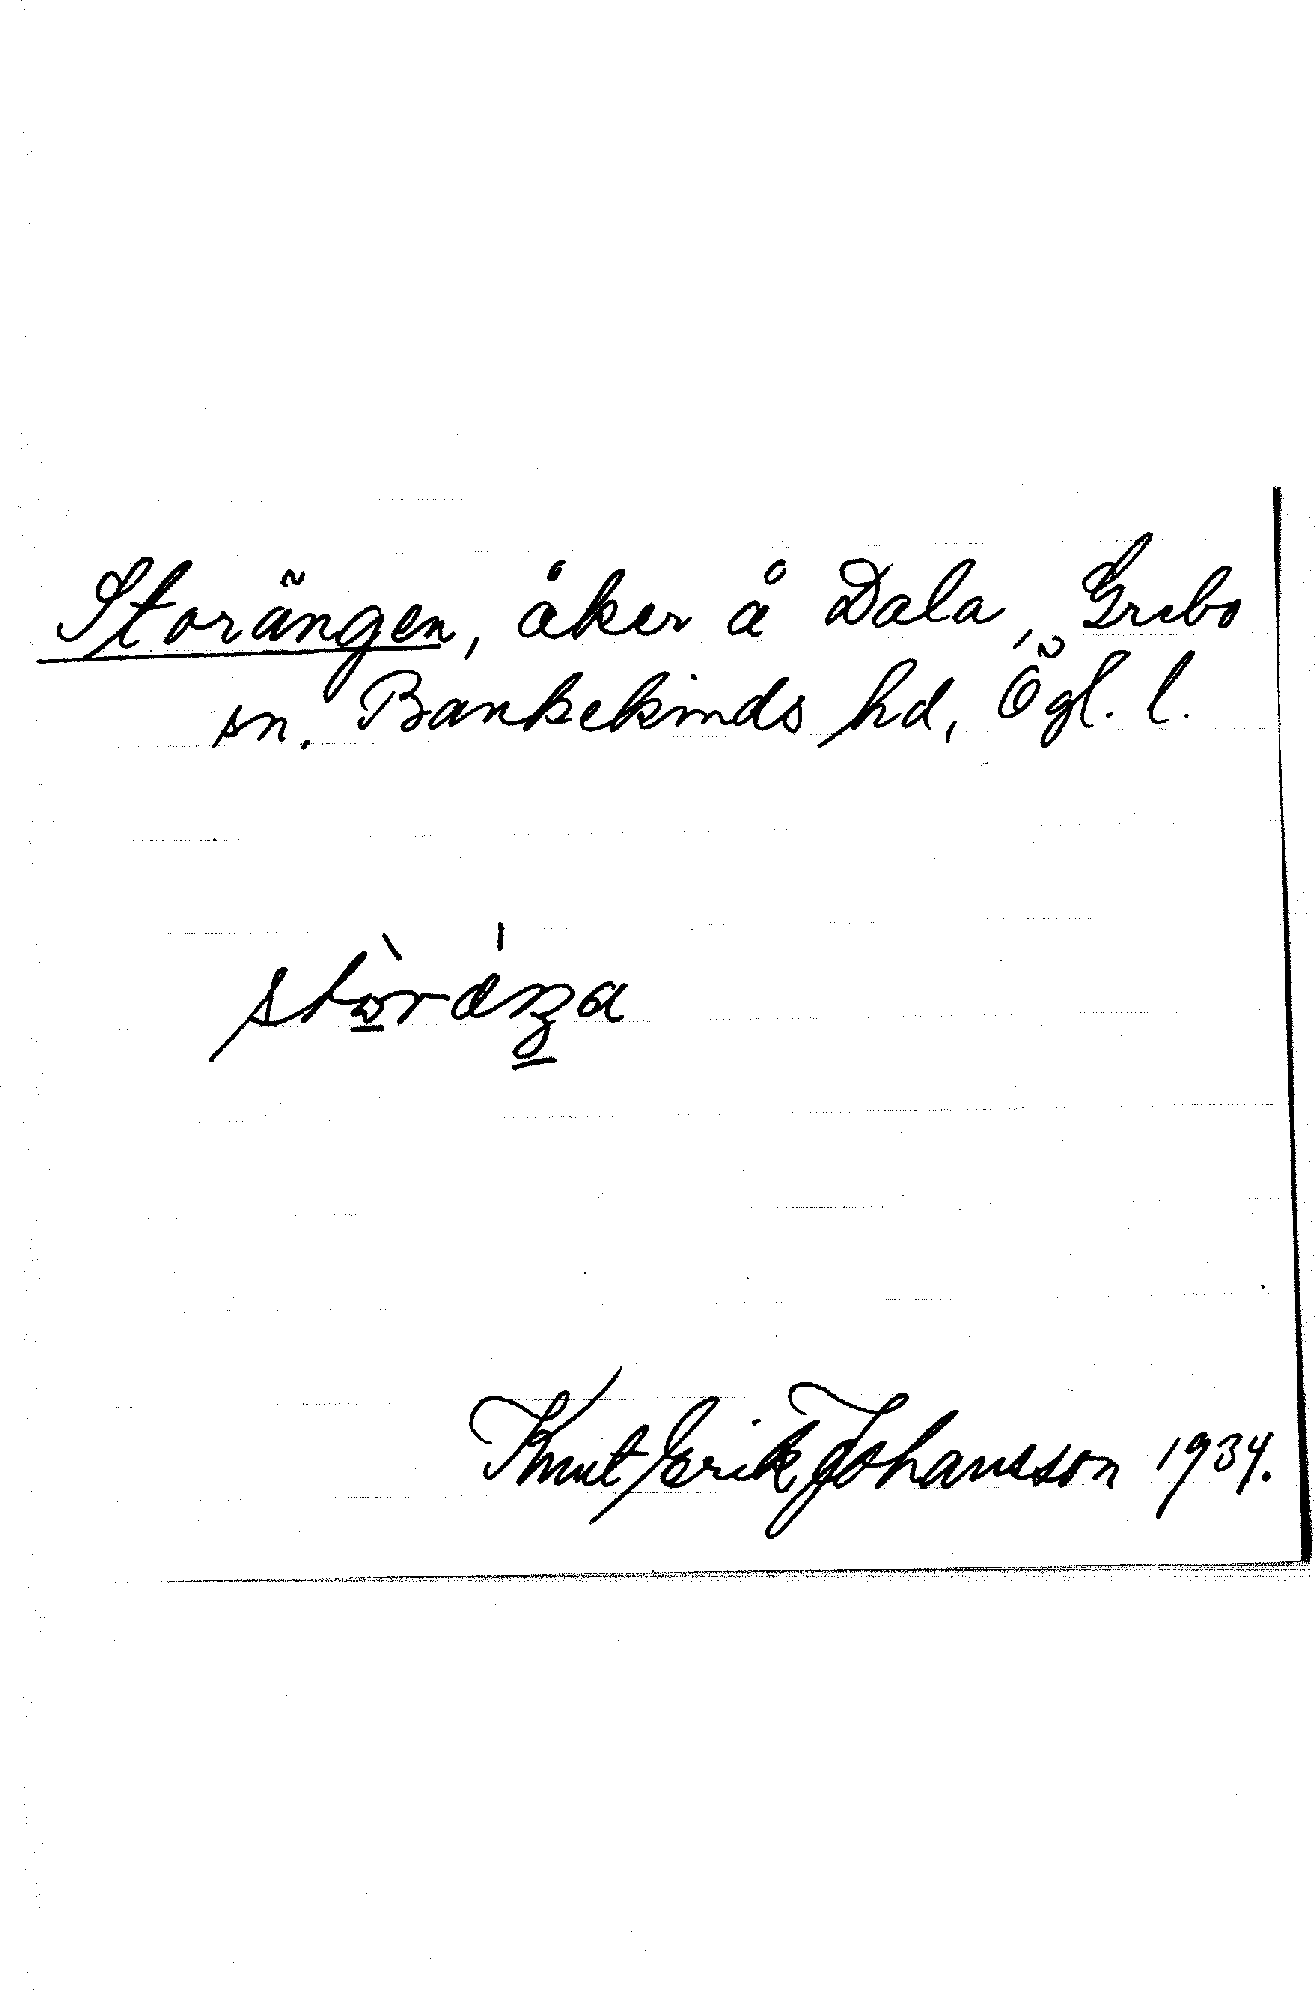 Storängen, åker å Dala, Grebo
sn. Bankekinds hd, Ögl. l.
stòràŋa
Knut Erik Johansson 1934.